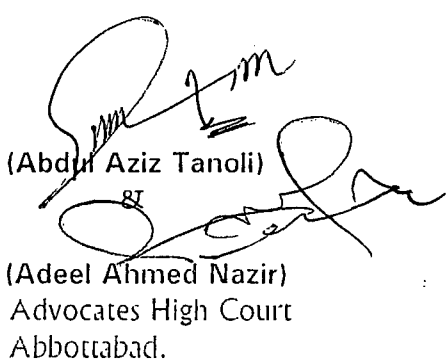 (Abdul Aziz Tanoli)
&
(Adeel Ahmed Nazir)
Advocates High Court
Abbottabad.